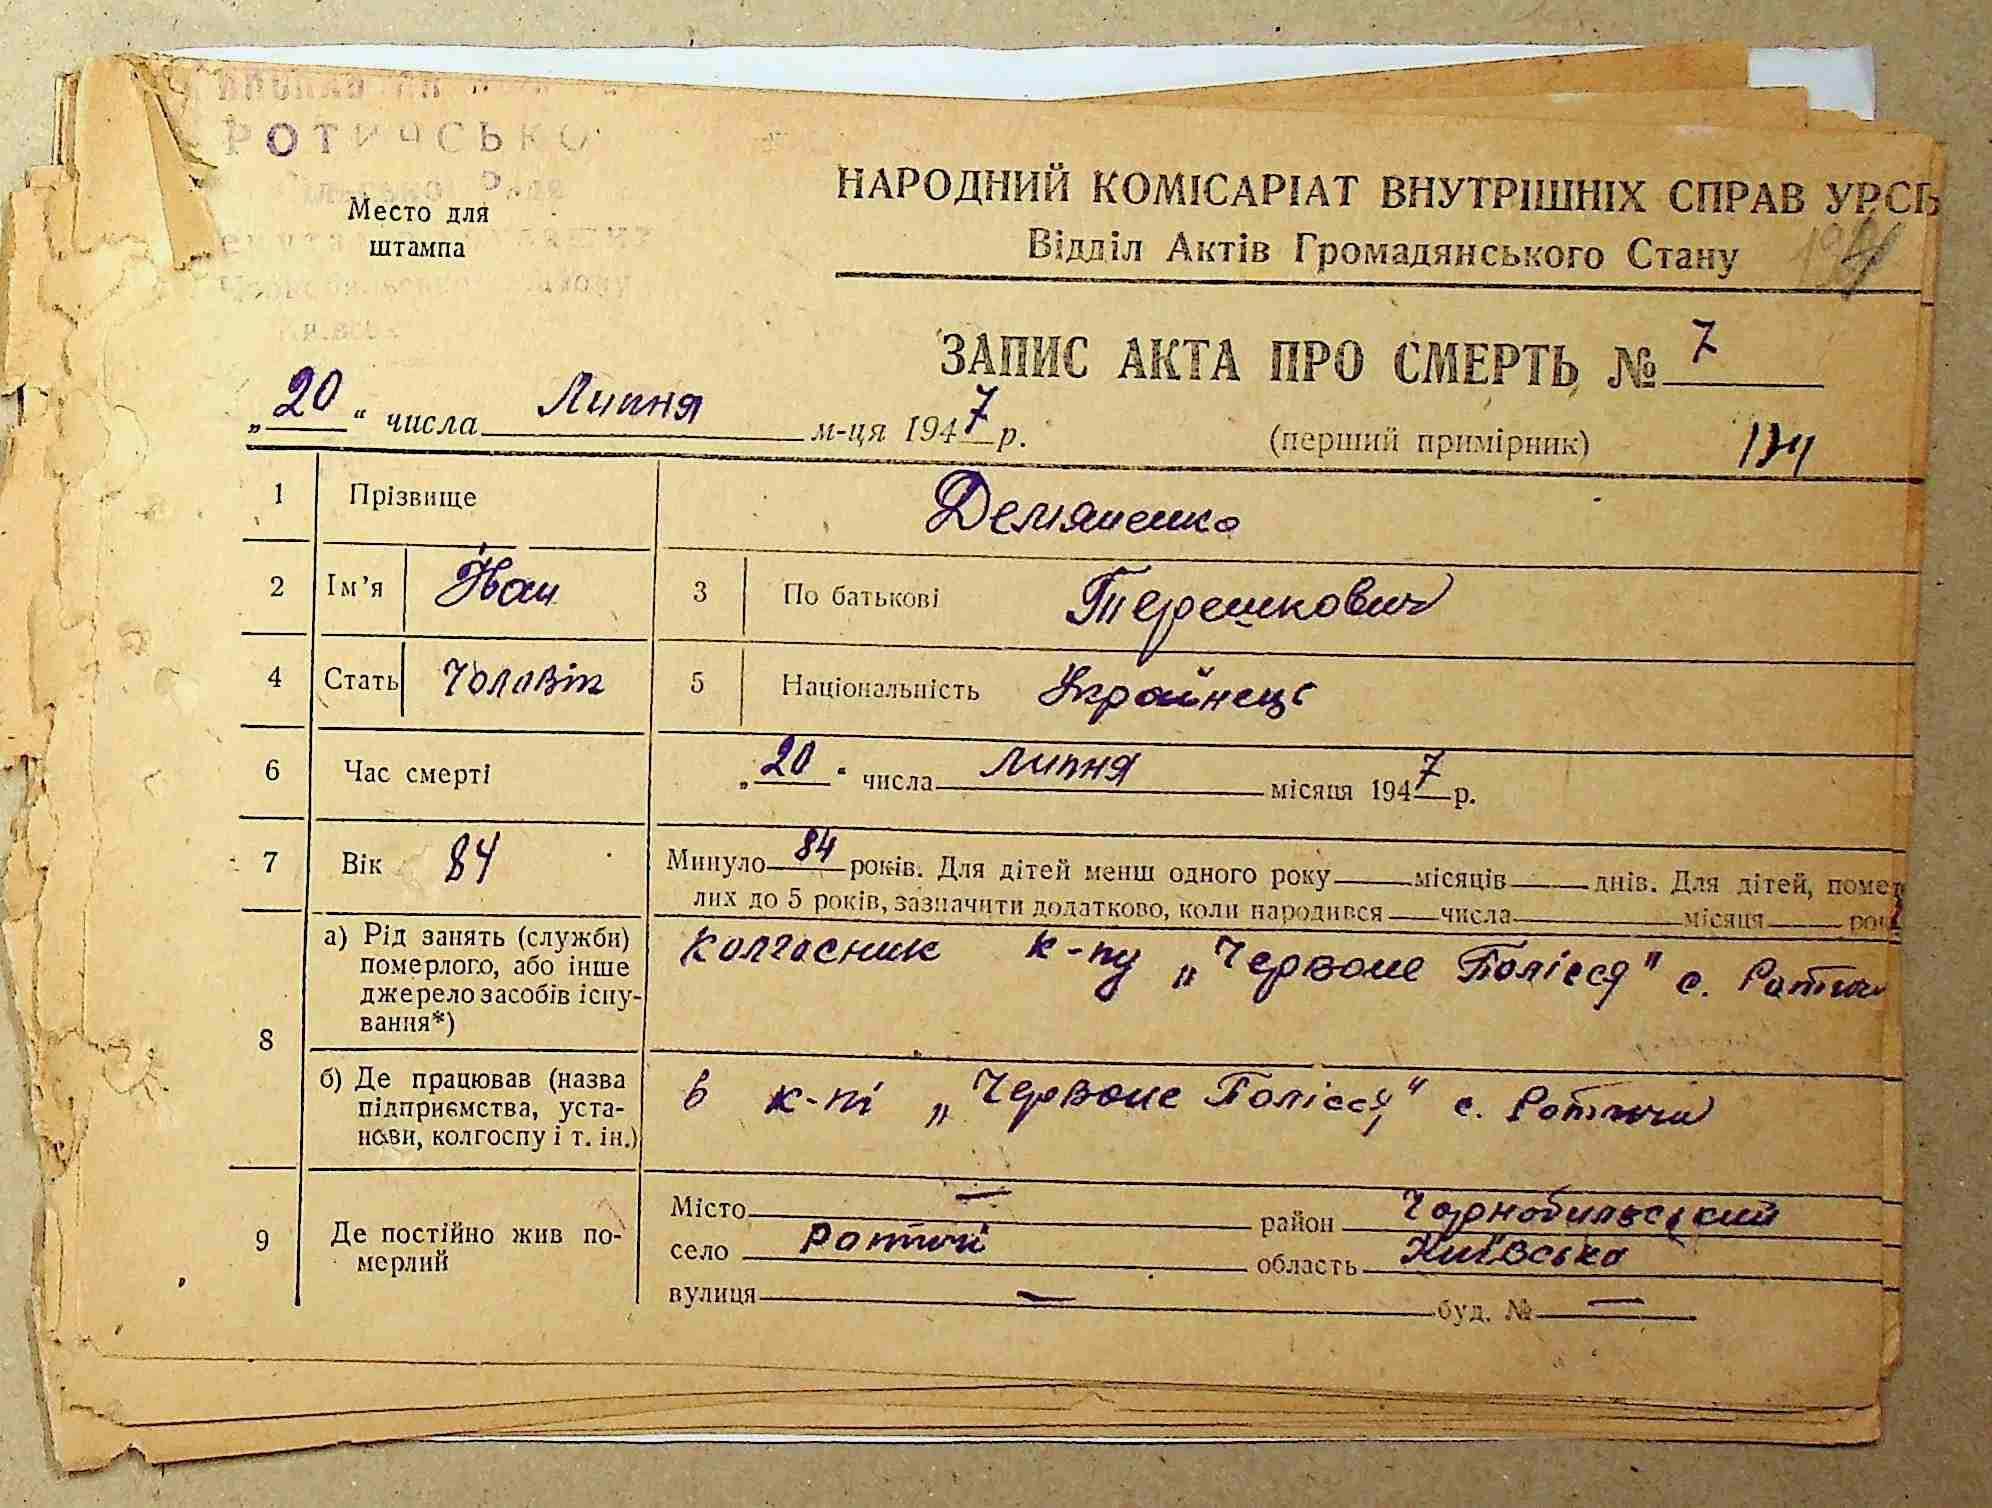 РОТИЧСЬКО
Место для
штампа
НАРОДНИЙ КОМІСАРІАТ ВНУТРІШНІХ СПРАВ УРСР
Відділ Актів Громадянського Стану
ЗАПИС АКТА ПРО СМЕРТЬ № 7
„20“ числа Липня м-ця 1947 р.
(перший примірник) 134
1 Прізвище Демяненко
2 Ім’я Іван 3 По батькові Терешкович
4 Стать Чоловік 5 Національність Українець
6 Час смерті „20“ числа липня місяця 1947 р.
7 Вік 84 Минуло 84 років. Для дітей менш одного року місяців днів. Для дітей, помер
лих до 5 років, зазначити додатково, коли народився числа місяця року
8 а) Рід занять (служби)
померлого, або інше
джерело засобів існу-
вання*)
колгосник к-пу „Червоне Полісся" с. Ротичи
б) Де працював (назва
підприємства, уста-
нови, колгоспу і т. ін.)
в к-пі „Червоне Полісся" с. Ротичи
9 Де постійно жив по-
мерлий
Місто — район Чорнобильський
село Ротичі область Київська
вулиця — буд. № —